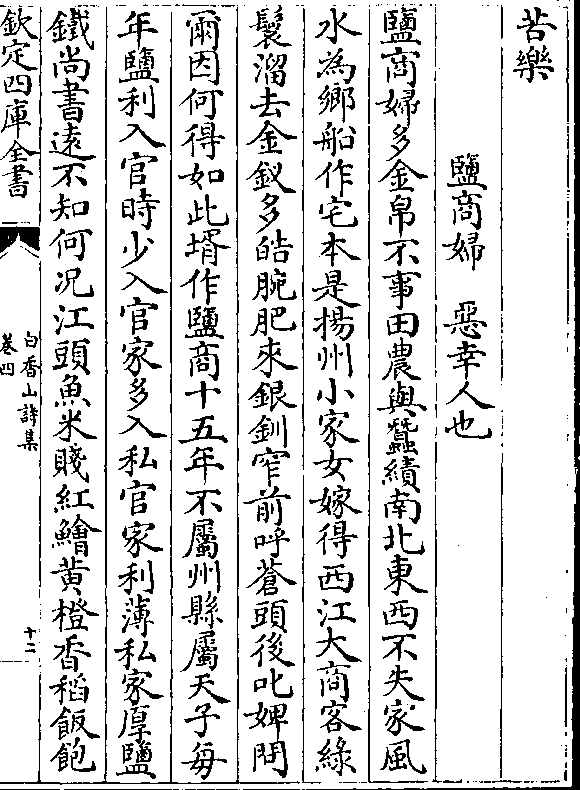 苦樂
鹽商婦　惡幸人也
鹽商婦多金帛不事田農與蠶績南北東西不失家風
水為鄉船作宅本是揚州小家女嫁得西江大商客綠
鬟溜去金釵多皓腕肥來銀釧窄前呼蒼頭後叱婢問
爾因何得如此壻作鹽商十五年不屬州縣屬天子每
年鹽利入官時少入官家多入私官家利薄私家厚鹽
鐵尚書遠不知何况江頭魚米賤紅鱠黄橙香稻飯飽
欽定四庫全書
白香山詩集
卷四
十二